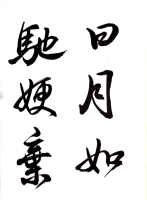 日月如
馳嫂棄